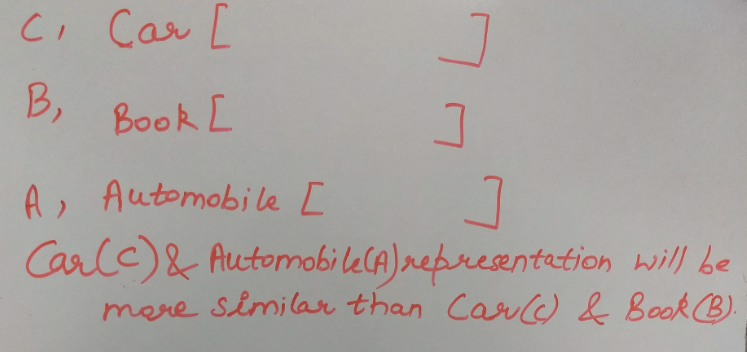 C, Car [ ]
B, Book [ ]
A, Automobile [ ]
Car(C) & Automobile(A) representation will be
more similar than Car(C) & Book(B).